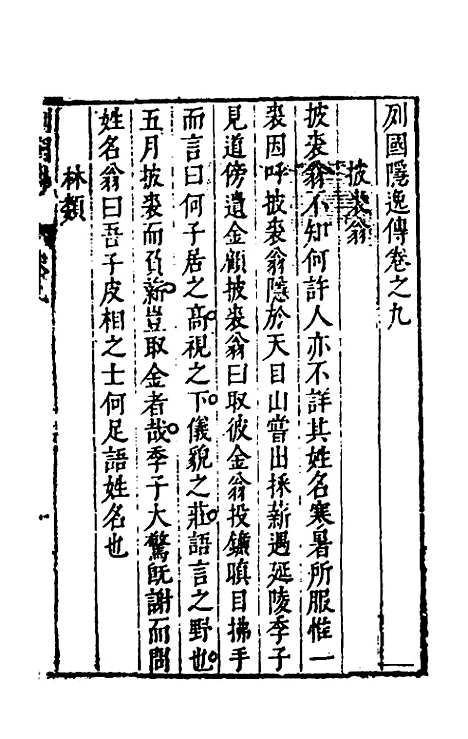 列國隱逸傳卷之九
披裘翁
披裘翁不知何許人亦不詳其姓名寒暑所服惟一
裘因呼披裘翁隱於天目山嘗出採薪遇延陵季子
見道傍遺金顧披裘翁曰取彼金翁投鐮瞋目拂手
而言曰何子居之高視之下儀貌之莊語言之野也
五月披裘而負薪豈取金者哉季子大驚既謝而問
姓名翁曰吾子皮相之士何足語姓名也
林類